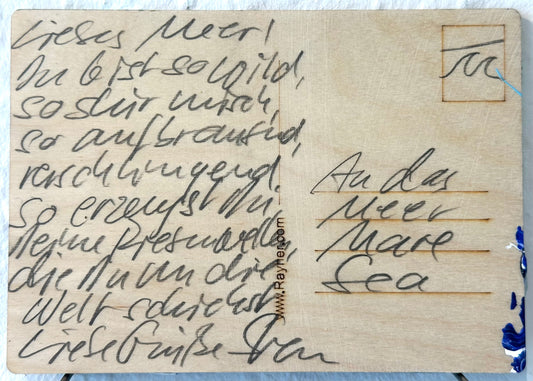 Liebes Meer!
Du bist so wild,
so stürmisch,
so aufbrausend,
verschlingend.
So erzeugst Du
Deine Riesenwellen,
die Du um die
Welt schickst
Liebe Grüße
www.RayHer.com
An das
Meer
Mare
Sea